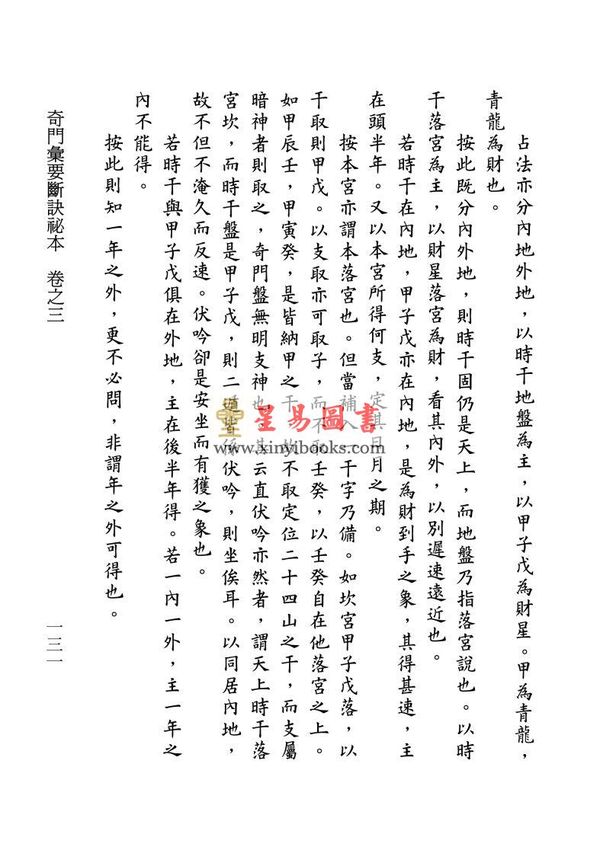 占法亦分內地外地，以時干地盤為主，以甲子戊為財星。甲為青龍，
青龍為財也。
按此既分內外地，則時干固仍是天上，而地盤乃指落宮說也。以時
干落宮為主，以財星落宮為財，看其內外，以別遲速遠近也。
若時干在內地，甲子戊亦在內地，是為財到手之象，其得甚速，主
在頭半年。又以本宮所得何支，定其月之期。
按本宮亦謂本落宮也。但當補入一干字乃備。如坎宮甲子戊落，以
干取則甲戊。以支取亦可取子，而不取壬癸，以壬癸自在他落宮之上。
如甲辰壬，甲寅癸，是皆納甲之干，故不取定位二十四山之干，而支屬
暗神者則取之，奇門盤無明支神也。其云直伏吟亦然者，謂天上時干落
宮坎，而時干盤是甲子戊，則二遁皆係伏吟，則坐俟耳。以同居內地，
故不但不淹久而反速。伏吟卻是安坐而有獲之象也。
若時干與甲子戊俱在外地，主在後半年得。若一內一外，主一年之
內不能得。
按此則知一年之外，更不必問，非謂年之外可得也。
奇門彙要斷訣祕本　卷之三
一三一
呈易圖書
www.xinyibooks.com